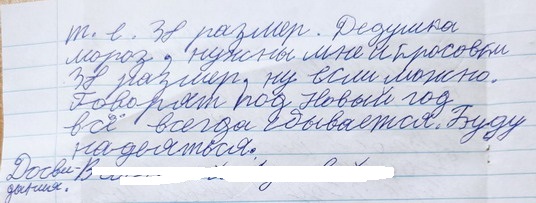 т. е. 38 размер. Дедушка
мороз, нужны мне и кросовки
38 размер, ну если можно.
Говорят под Новый год
всё всегда сбывается. Буду
надеяться.
Досви-
дания.